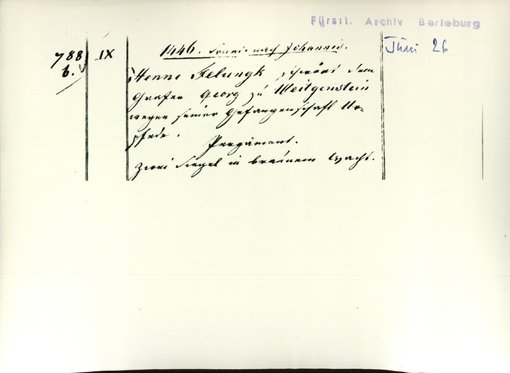 Fürstl. Archiv Berleburg
788 IX 1446. nach Johannis. Juni 26
b. Henne schwört dem
Grafen Georg zu Witgenstein
wegen seiner Gefangenschaft Ur-
phede.
Pergament.
Zwei Siegel in braunem Wachs.